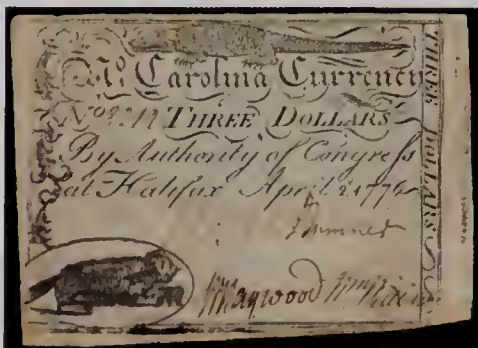 No. Carolina Currency
No THREE DOLLARS
By Authority of Congress
at Halifax April 2 1776
J Sumner
Haywood
THREE DOLLARS